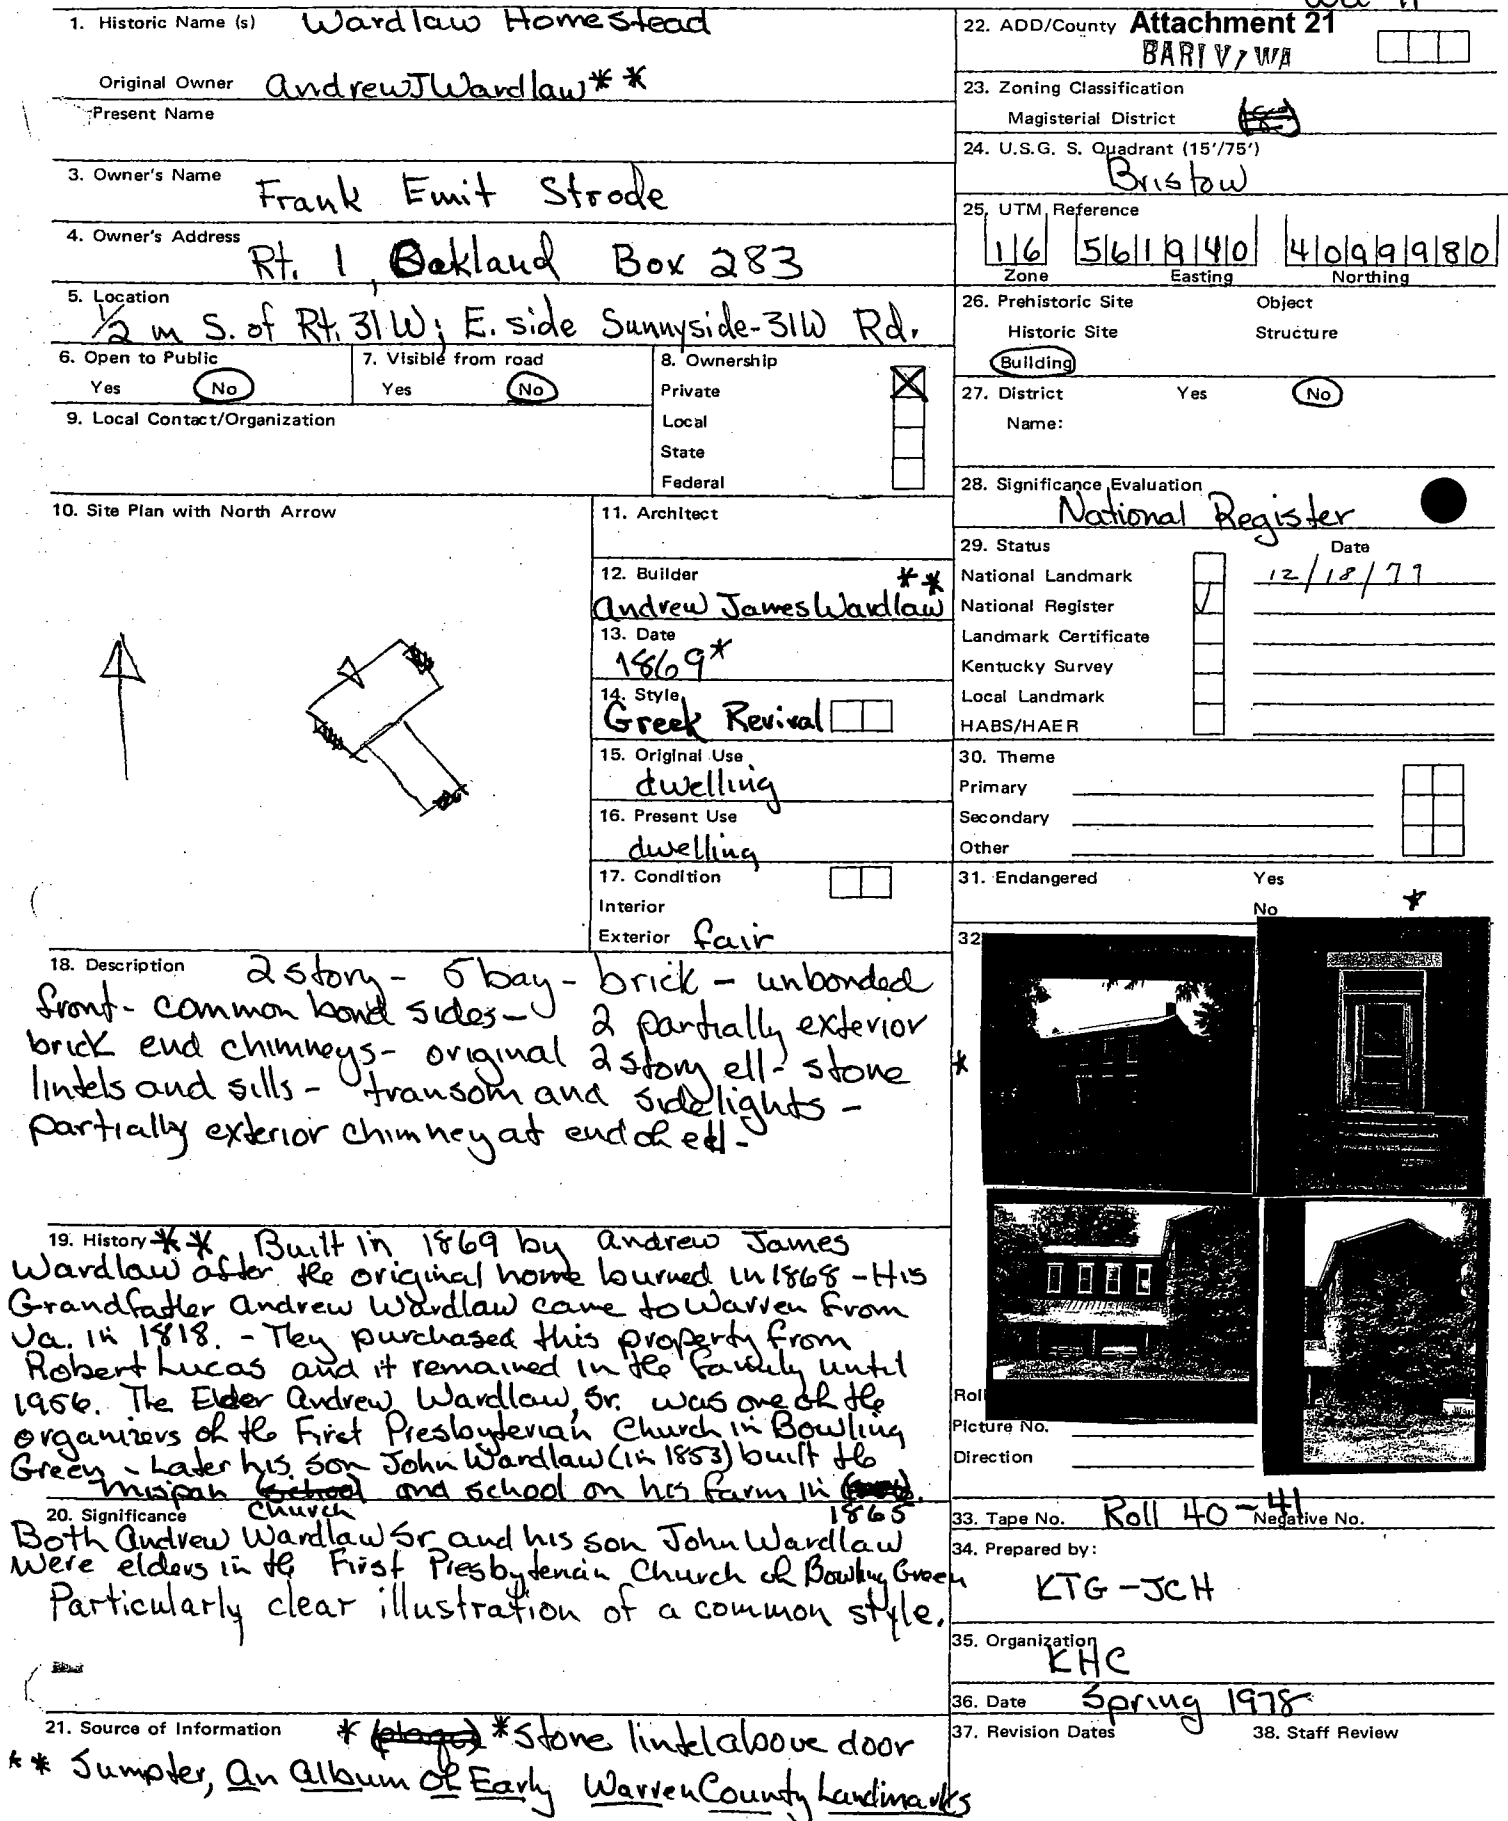 1. Historic Name (s) Wardlaw Homestead
Original Owner Andrew J Wardlaw**
Present Name
3. Owner's Name Frank Emit Strode
4. Owner's Address Rt. 1, Oakland Box 283
5. Location
1/2 m S. of Rt. 31W; E. side Sunnyside-31W Rd.
6. Open to Public
Yes No
7. Visible from road
Yes No
8. Ownership
Private
Local
State
Federal
9. Local Contact/Organization
10. Site Plan with North Arrow
11. Architect
12. Builder **
Andrew James Wardlaw
13. Date
1869*
14. Style
Greek Revival
15. Original Use
dwelling
16. Present Use
dwelling
17. Condition
Interior
Exterior fair
18. Description 2 story - 5 bay - brick - unbonded
front - common bond sides - 2 partially exterior
brick end chimneys - original 2 story ell - stone
lintels and sills - transom and sidelights -
partially exterior chimney at end of ell -
19. History ** Built in 1869 by Andrew James
Wardlaw after the original home burned in 1868 - His
Grandfather Andrew Wardlaw came to Warren from
Va. in 1818. - They purchased this property from
Robert Lucas and it remained in the family until
1956. The Elder Andrew Wardlaw, Sr. was one of the
organizers of the First Presbyterian Church in Bowling
Green - Later his son John Wardlaw (in 1853) built the
Mispah church and school on his farm in 1865
20. Significance
Both Andrew Wardlaw Sr. and his son John Wardlaw
were elders in the First Presbyterian Church of Bowling Green
Particularly clear illustration of a common style.
21. Source of Information * *Stone lintel above door
** Sumpter, An Album of Early Warren County Landmarks
22. ADD/County Attachment 21
BARIV/WA
23. Zoning Classification
Magisterial District
24. U.S.G. S. Quadrant (15'/75')
Bristow
25. UTM Reference
16 561940 4099980
Zone Easting Northing
26. Prehistoric Site Object
Historic Site Structure
Building
27. District Yes No
Name:
28. Significance Evaluation
National Register
29. Status Date
National Landmark 12/18/79
National Register
Landmark Certificate
Kentucky Survey
Local Landmark
HABS/HAER
30. Theme
Primary
Secondary
Other
31. Endangered Yes
No *
32
*
Roll
Picture No.
Direction
33. Tape No. Roll 40-41 Negative No.
34. Prepared by:
KTG-JCH
35. Organization
KHC
36. Date Spring 1978
37. Revision Dates 38. Staff Review